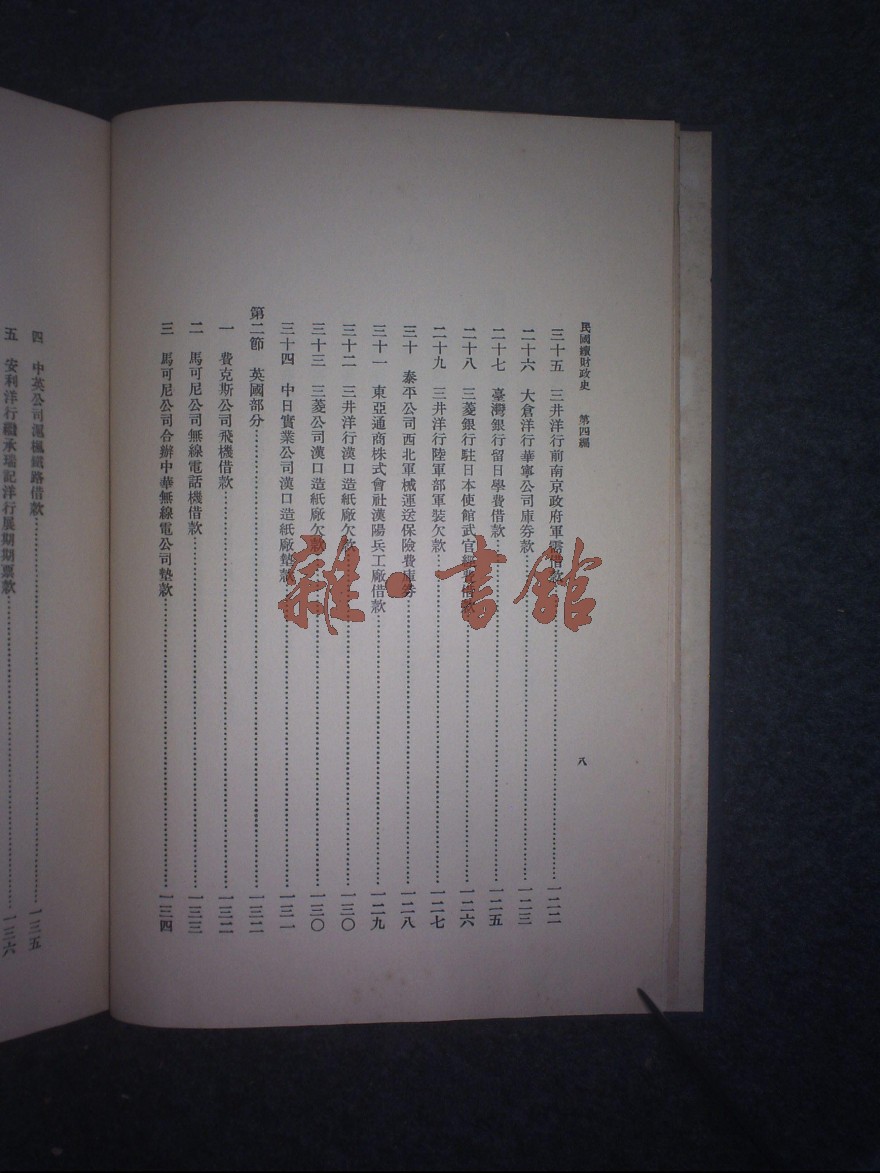 民國續財政史　第四編
八
三十五　三井洋行前南京政府軍需借款……一二二
二十六　大倉洋行華寧公司庫券款……一二三
二十七　臺灣銀行留日學費借款……一二五
二十八　三菱銀行駐日本使館武官經費借款……一二六
二十九　三井洋行陸軍部軍裝欠款……一二七
三十　泰平公司西北軍械運送保險費庫券……一二八
三十一　東亞通商株式會社漢陽兵工廠借款……一二九
三十二　三井洋行漢口造紙廠欠款……一三〇
三十三　三菱公司漢口造紙廠欠款……一三〇
三十四　中日實業公司漢口造紙廠墊款……一三一
第二節　英國部分……一三二
一　費克斯公司飛機借款……一三二
二　馬可尼公司無線電話機借款……一三三
三　馬可尼公司合辦中華無線電公司墊款……一三四
四　中英公司滬楓鐵路借款……一三五
五　安利洋行繼承瑞記洋行展期期票款……一三六
雜·書館